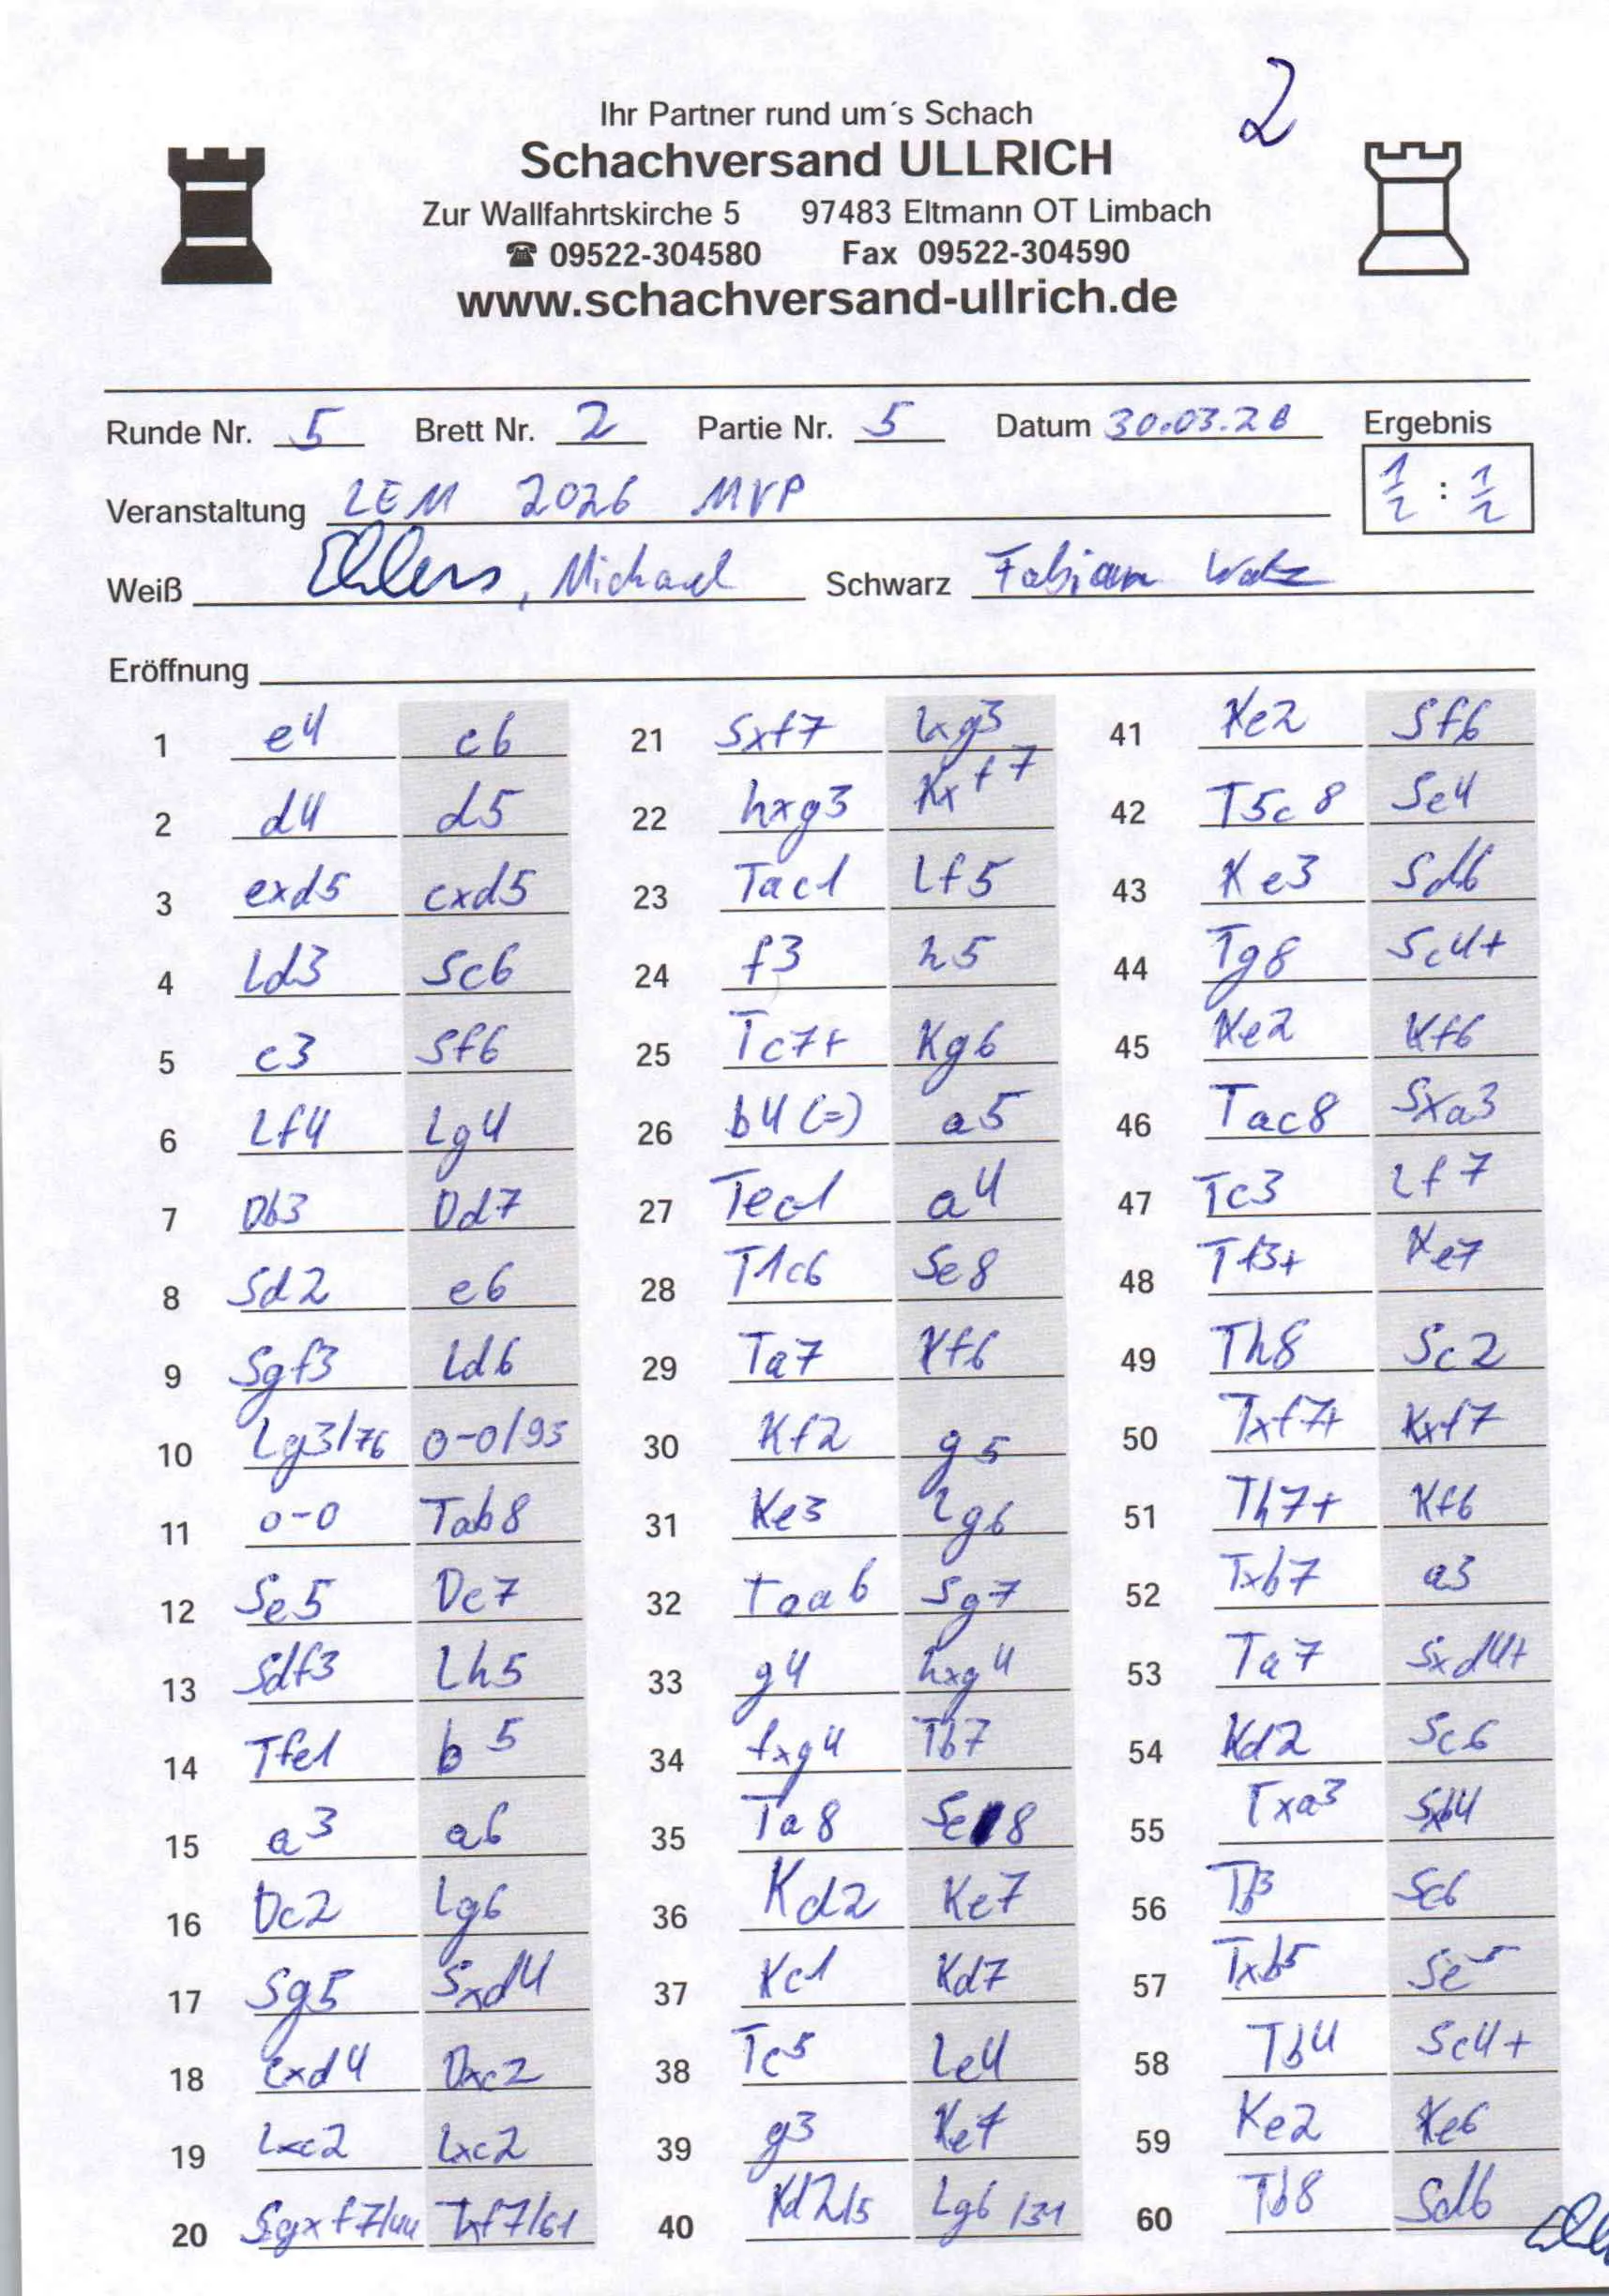 2
Ihr Partner rund um´s Schach
Schachversand ULLRICH
Zur Wallfahrtskirche 5 97483 Eltmann OT Limbach
☎ 09522-304580 Fax 09522-304590
www.schachversand-ullrich.de
Runde Nr. 5 Brett Nr. 2 Partie Nr. 5 Datum 30.03.26 Ergebnis
Veranstaltung LEM 2026 MVP 1/2 : 1/2
Weiß Ehlers, Michael Schwarz Fabian Watz
Eröffnung
1 e4 c6
2 d4 d5
3 exd5 cxd5
4 Ld3 Sc6
5 c3 Sf6
6 Lf4 Lg4
7 Db3 Dd7
8 Sd2 e6
9 Sgf3 Ld6
10 Lg3/76 0-0/93
11 0-0 Tab8
12 Se5 Dc7
13 Sdf3 Lh5
14 Tfe1 b5
15 a3 a6
16 Dc2 Lg6
17 Sg5 Sxd4
18 cxd4 Dxc2
19 Lxc2 Lxc2
20 Sgxf7/44 Txf7/61
21 Sxf7 Lxg3
22 hxg3 Kxf7
23 Tac1 Lf5
24 f3 h5
25 Tc7+ Kg6
26 b4 (=) a5
27 Tec1 a4
28 T1c6 Se8
29 Ta7 Kf6
30 Kf2 g5
31 Ke3 Lg6
32 Taa6 Sg7
33 g4 hxg4
34 fxg4 Tb7
35 Ta8 Se8
36 Kd2 Ke7
37 Kc1 Kd7
38 Tc5 Le4
39 g3 Ke7
40 Kd2/5 Lg6/31
41 Ke2 Sf6
42 T5c8 Se4
43 Ke3 Sd6
44 Tg8 Sc4+
45 Ke2 Kf6
46 Tac8 Sxa3
47 Tc3 Lf7
48 Tf3+ Ke7
49 Th8 Sc2
50 Txf7+ Kxf7
51 Th7+ Kf6
52 Txb7 a3
53 Ta7 Sxd4+
54 Kd2 Sc6
55 Txa3 Sxb4
56 Tb3 Sc6
57 Txb5 Se5
58 Tb4 Sc4+
59 Ke2 Ke6
60 Tb8 Sd6